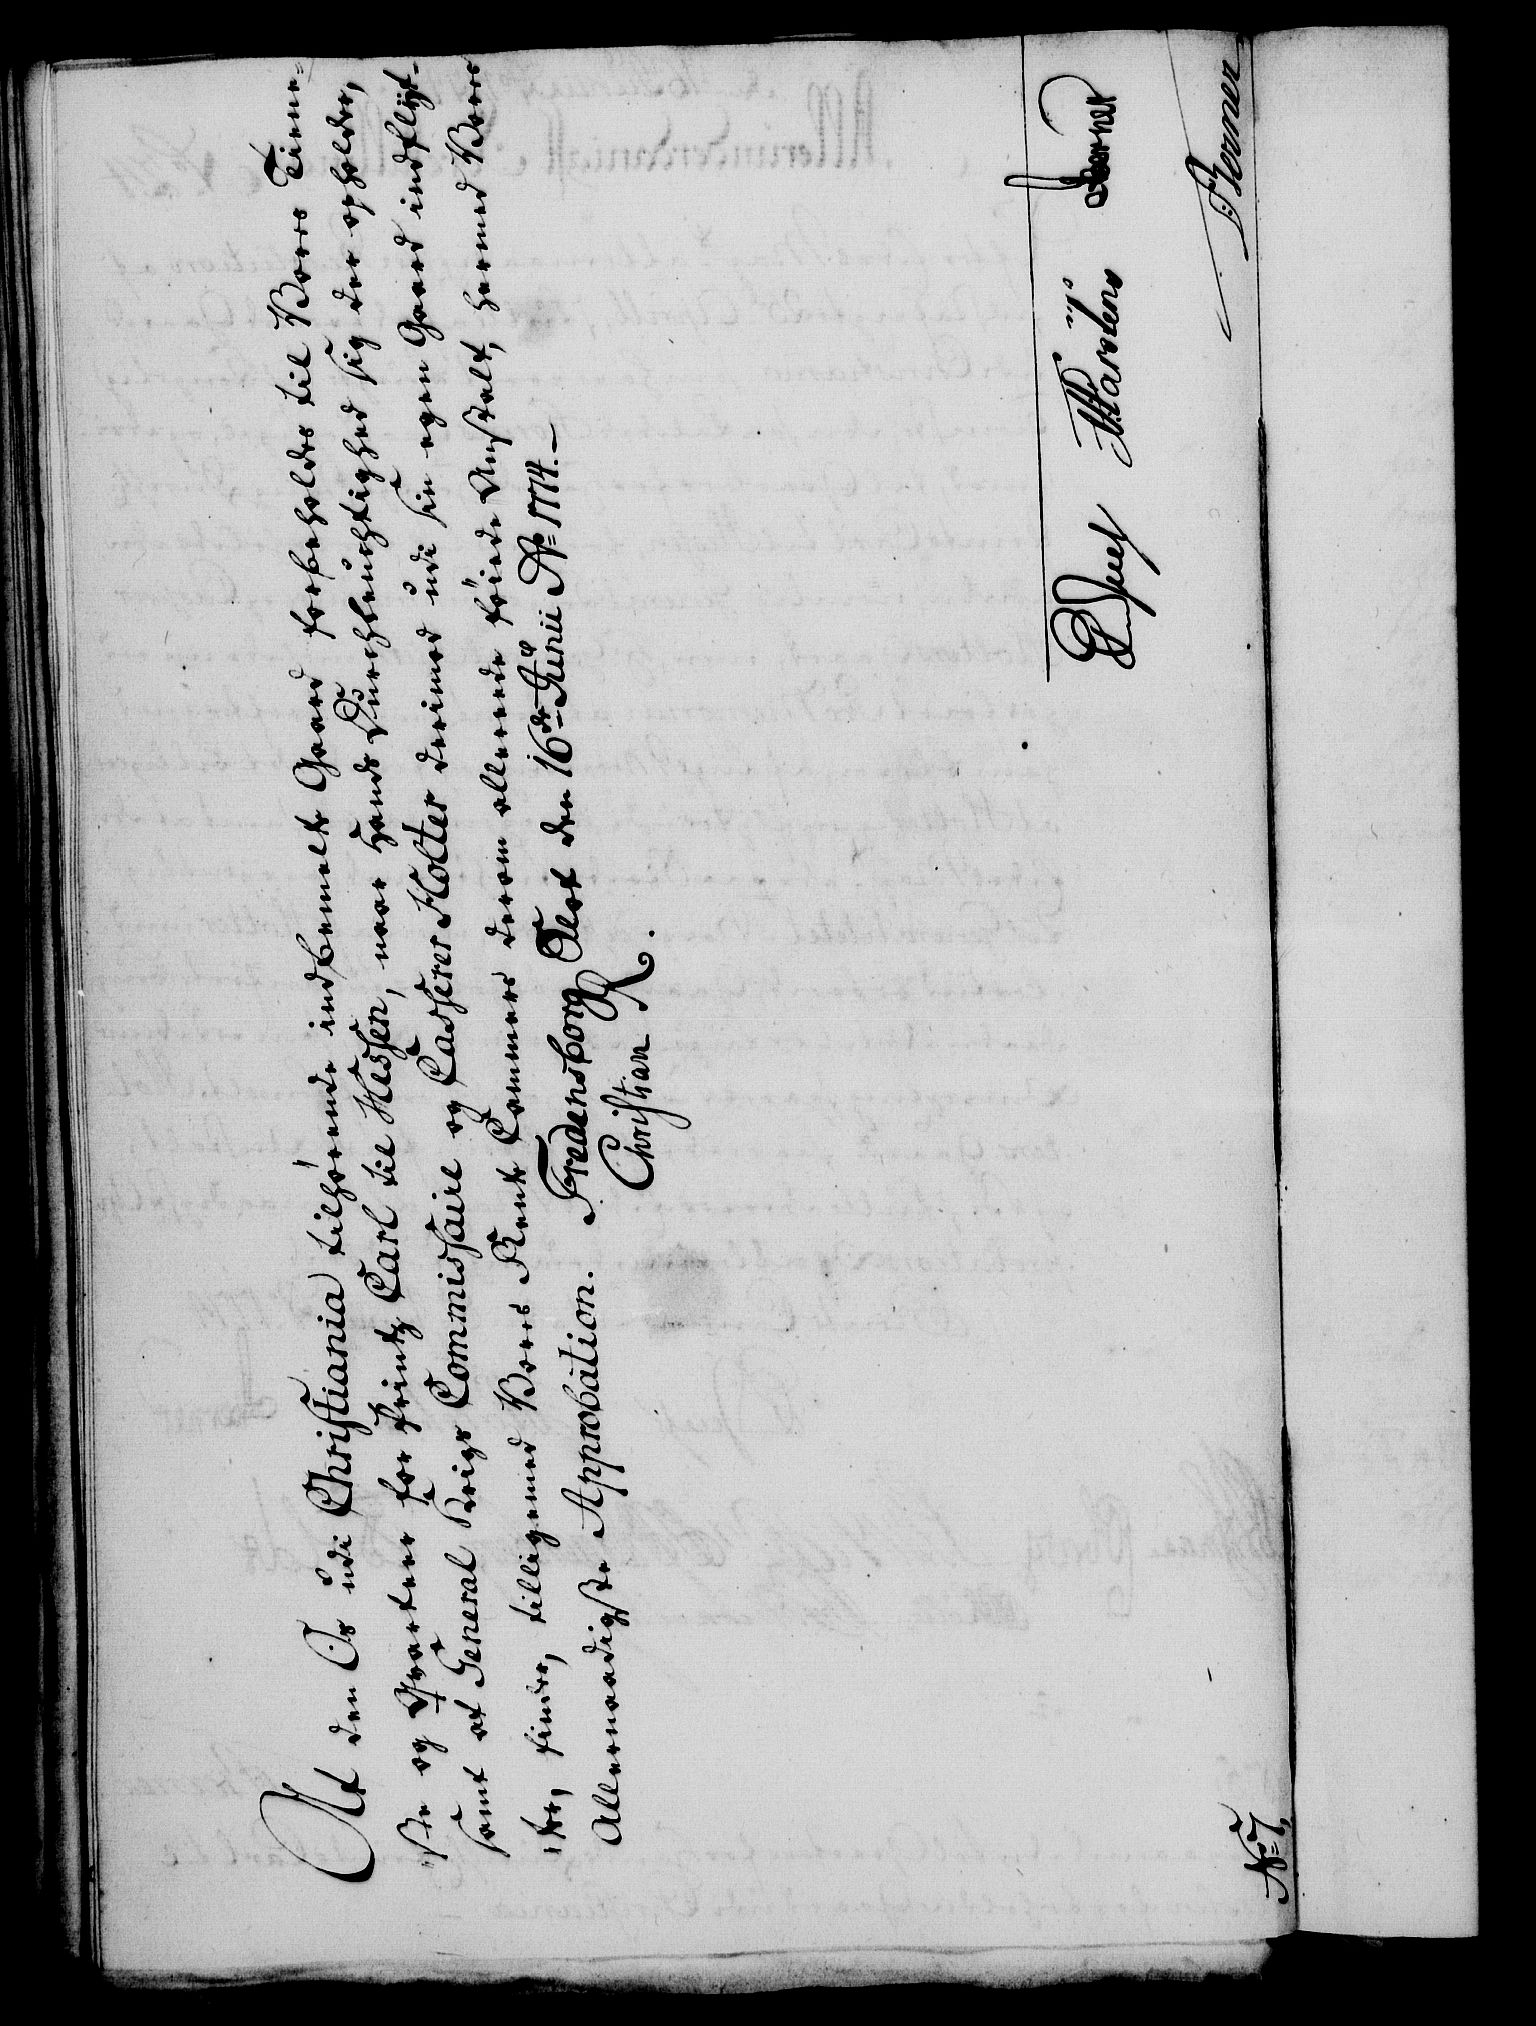 At den Os udi Christiania tilhørende indbemelte Gaard forbeholdes til Vores Tiene¬
ste og Qvarteer for Printz Carl til Hessen, naar Hands Durchleuchtighed sig der opholder,
samt at General Krigs Commissaire og Casserer Holter derimod udi sin egen Gaard indflyt¬
ter, finder, tilligemed Vores Rente Cammers derom allerede føiede Anstalt, hermed Vores
Allernaadigste Approbation. Fredensborg Slot den 16de Junii Ao 1774.
Christian R.
Juel Martens Berner
Berner
No 7,